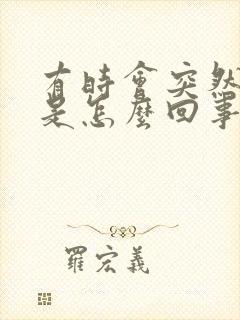 有時會突然
是怎麼回事
羅宏義